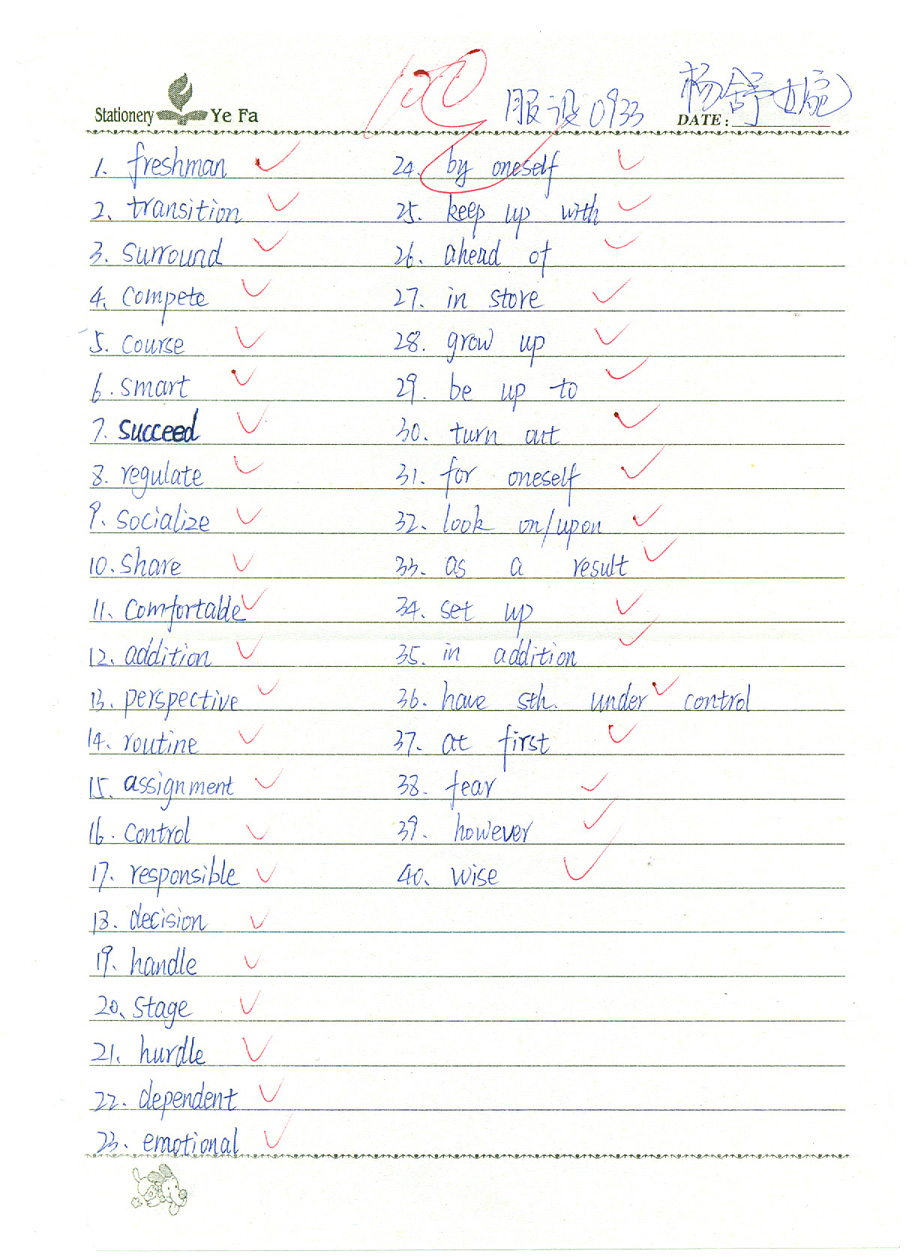 100
Stationery Ye Fa
服设0933 杨舒婉
DATE:
1. freshman
2. transition
3. surround
4. compete
5. course
6. smart
7. succeed
8. regulate
9. socialize
10. share
11. comfortable
12. addition
13. perspective
14. routine
15. assignment
16. control
17. responsible
18. decision
19. handle
20. stage
21. hurdle
22. dependent
23. emotional
24. by oneself
25. keep up with
26. ahead of
27. in store
28. grow up
29. be up to
30. turn out
31. for oneself
32. look on/upon
33. as a result
34. set up
35. in addition
36. have sth. under control
37. at first
38. fear
39. however
40. wise